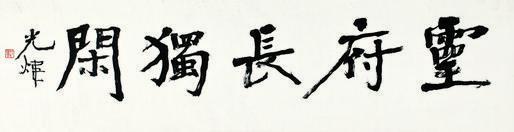 靈府長獨閑
光煇